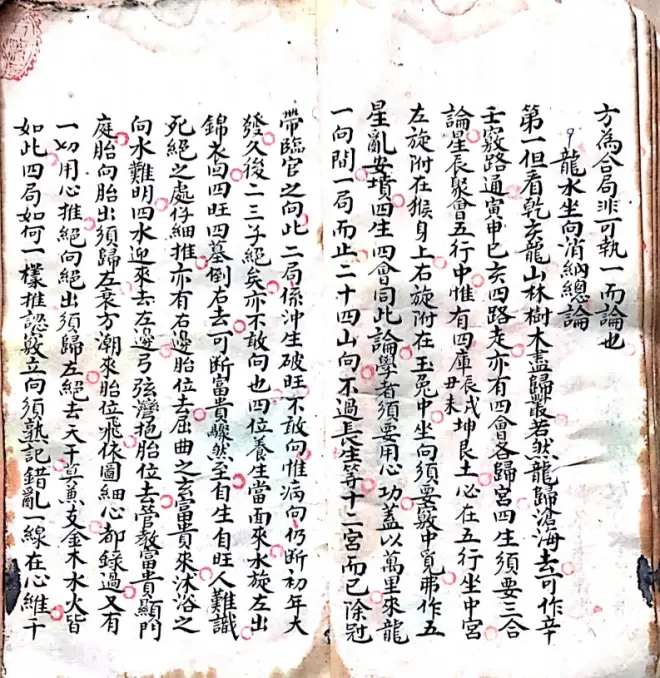 方為合局非可執一而論也
龍水坐向消納總論
第一但看乾亥龍山林樹木盡歸叢若然龍歸滄海去可作辛
壬竅路通寅申巳亥四路走亦有四會各歸宮四生須要三合
論星辰聚會五行中惟有四庫辰戌丑未坤艮土必在五行坐中宮
左旋附在猴身上右旋附在玉兔中坐向須要竅中覓弗作五
星亂安墳四生四會同此論學者須要用心功蓋以萬里來龍
一向間一局而止二十四山向不過長生等十二宮而已除冠
帶臨官之向此二局係沖生破旺不敢向惟病向仍斷初年大
發久後二三子絕矣亦不敢向也四位養生當面來水旋左出
錦衣囘四旺四墓倒右去可斷富貴驟然至自生自旺人難識
死絕之處仔細推亦有右邊胎位去屈曲之玄富貴來沐浴之
向水難明四水迎來去左邊弓弦灣抱胎位去管教富貴顯門
庭胎向胎出須歸左衰方潮來胎位飛依圖細心都錄過又有
一切用心推絕向絕出須歸左絕去天干莫熏支金木水火皆
如此四局如何一樣推認竅立向須熟記錯亂一線在心維干